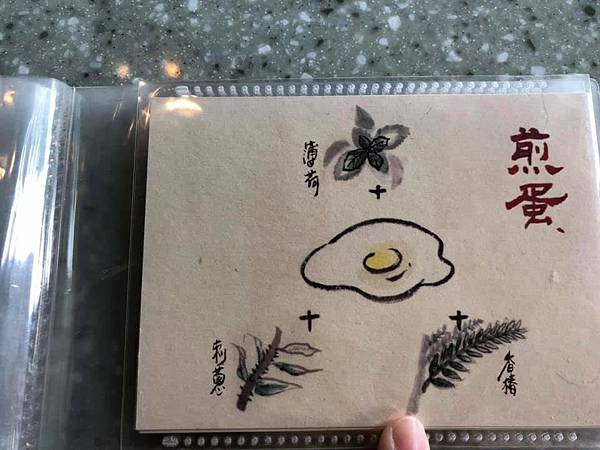 煎蛋
薄荷
刺蔥
香椿